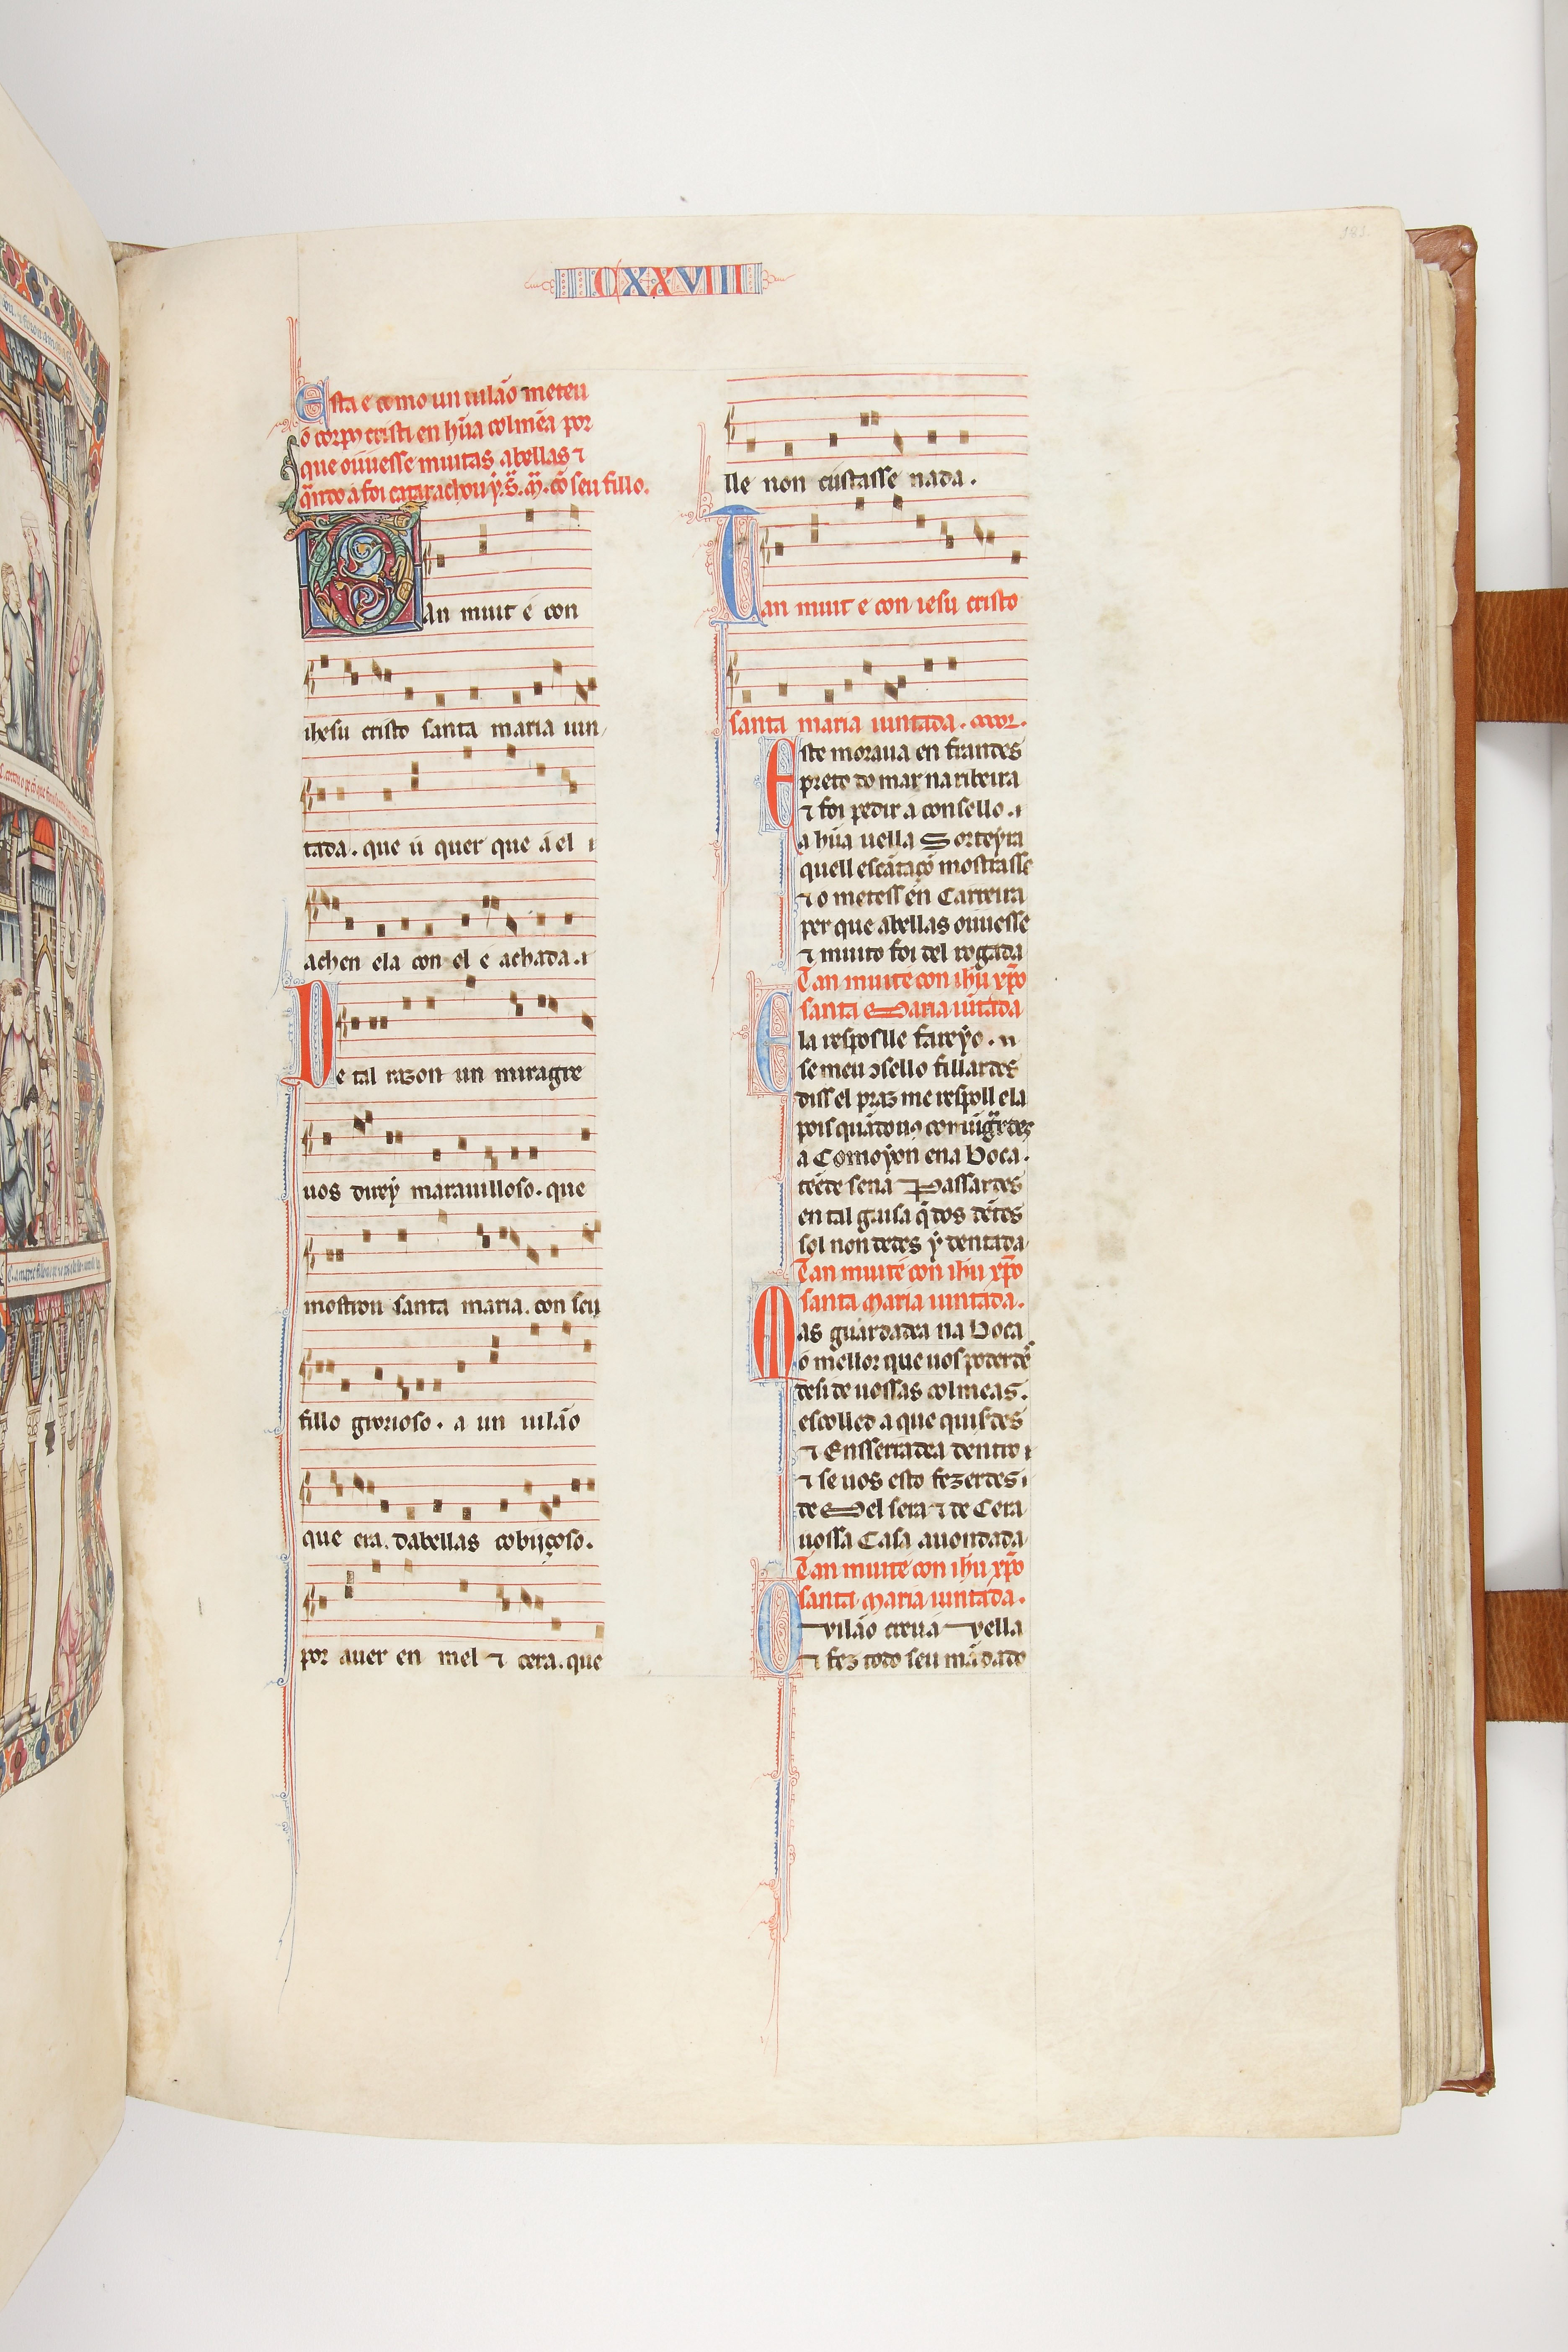 CXXVIII
Esta e como un uilão meteu
o corpo cristi en hũa colmẽa por
que ouuesse muitas abellas ⁊
q̃ndo a foi catar achou y. S. M. cõ seu fillo.
Tan muit e con
ihesu cristo santa maria iun
tada. que u quer que a el
achen ela con el e achada.
De tal razon un miragre
uos direy marauilloso. que
mostrou santa maria. con seu
fillo grorioso. a un uilão
que era. dabellas cobijçoso.
por auer en mel ⁊ cera. que
lle non custasse nada.
Tan muit e con iesu cristo
santa maria iuntada.
Este moraua en frandes
preto do mar na ribeira
⁊ foi pedir a consello.
a hũa uella Sorteyra
quell escãtaçõ mostrasse
⁊ o metess en Carreira
per que abellas ouuesse
⁊ muito foi del rogada
Tan muit e con ihu xpo
santa Maria iũtada
Ela respos lle farey o.
se meu ɔsello fillardes
diss el praz me respos ll ela
pois quãdo uꝯ comũigardes
a Comoyon ena Boca.
teede sena Passardes
en tal guisa q̃ dos dẽtes
sol non dedes y dentada
Tan muit e con ihu xpo
santa Maria iuntada.
Mas guardadea na Boca
o mellor que uos poderdes
desi de uossas colmeas.
escolled a que quiserdes
⁊ Ensserradea dentro
⁊ se uos esto fezerdes
de Mel sera ⁊ de Cera
uossa Casa auondada
Tan muit e con ihu xpo
santa Maria iuntada.
O vilão creu a vella
⁊ fez todo seu mãdado